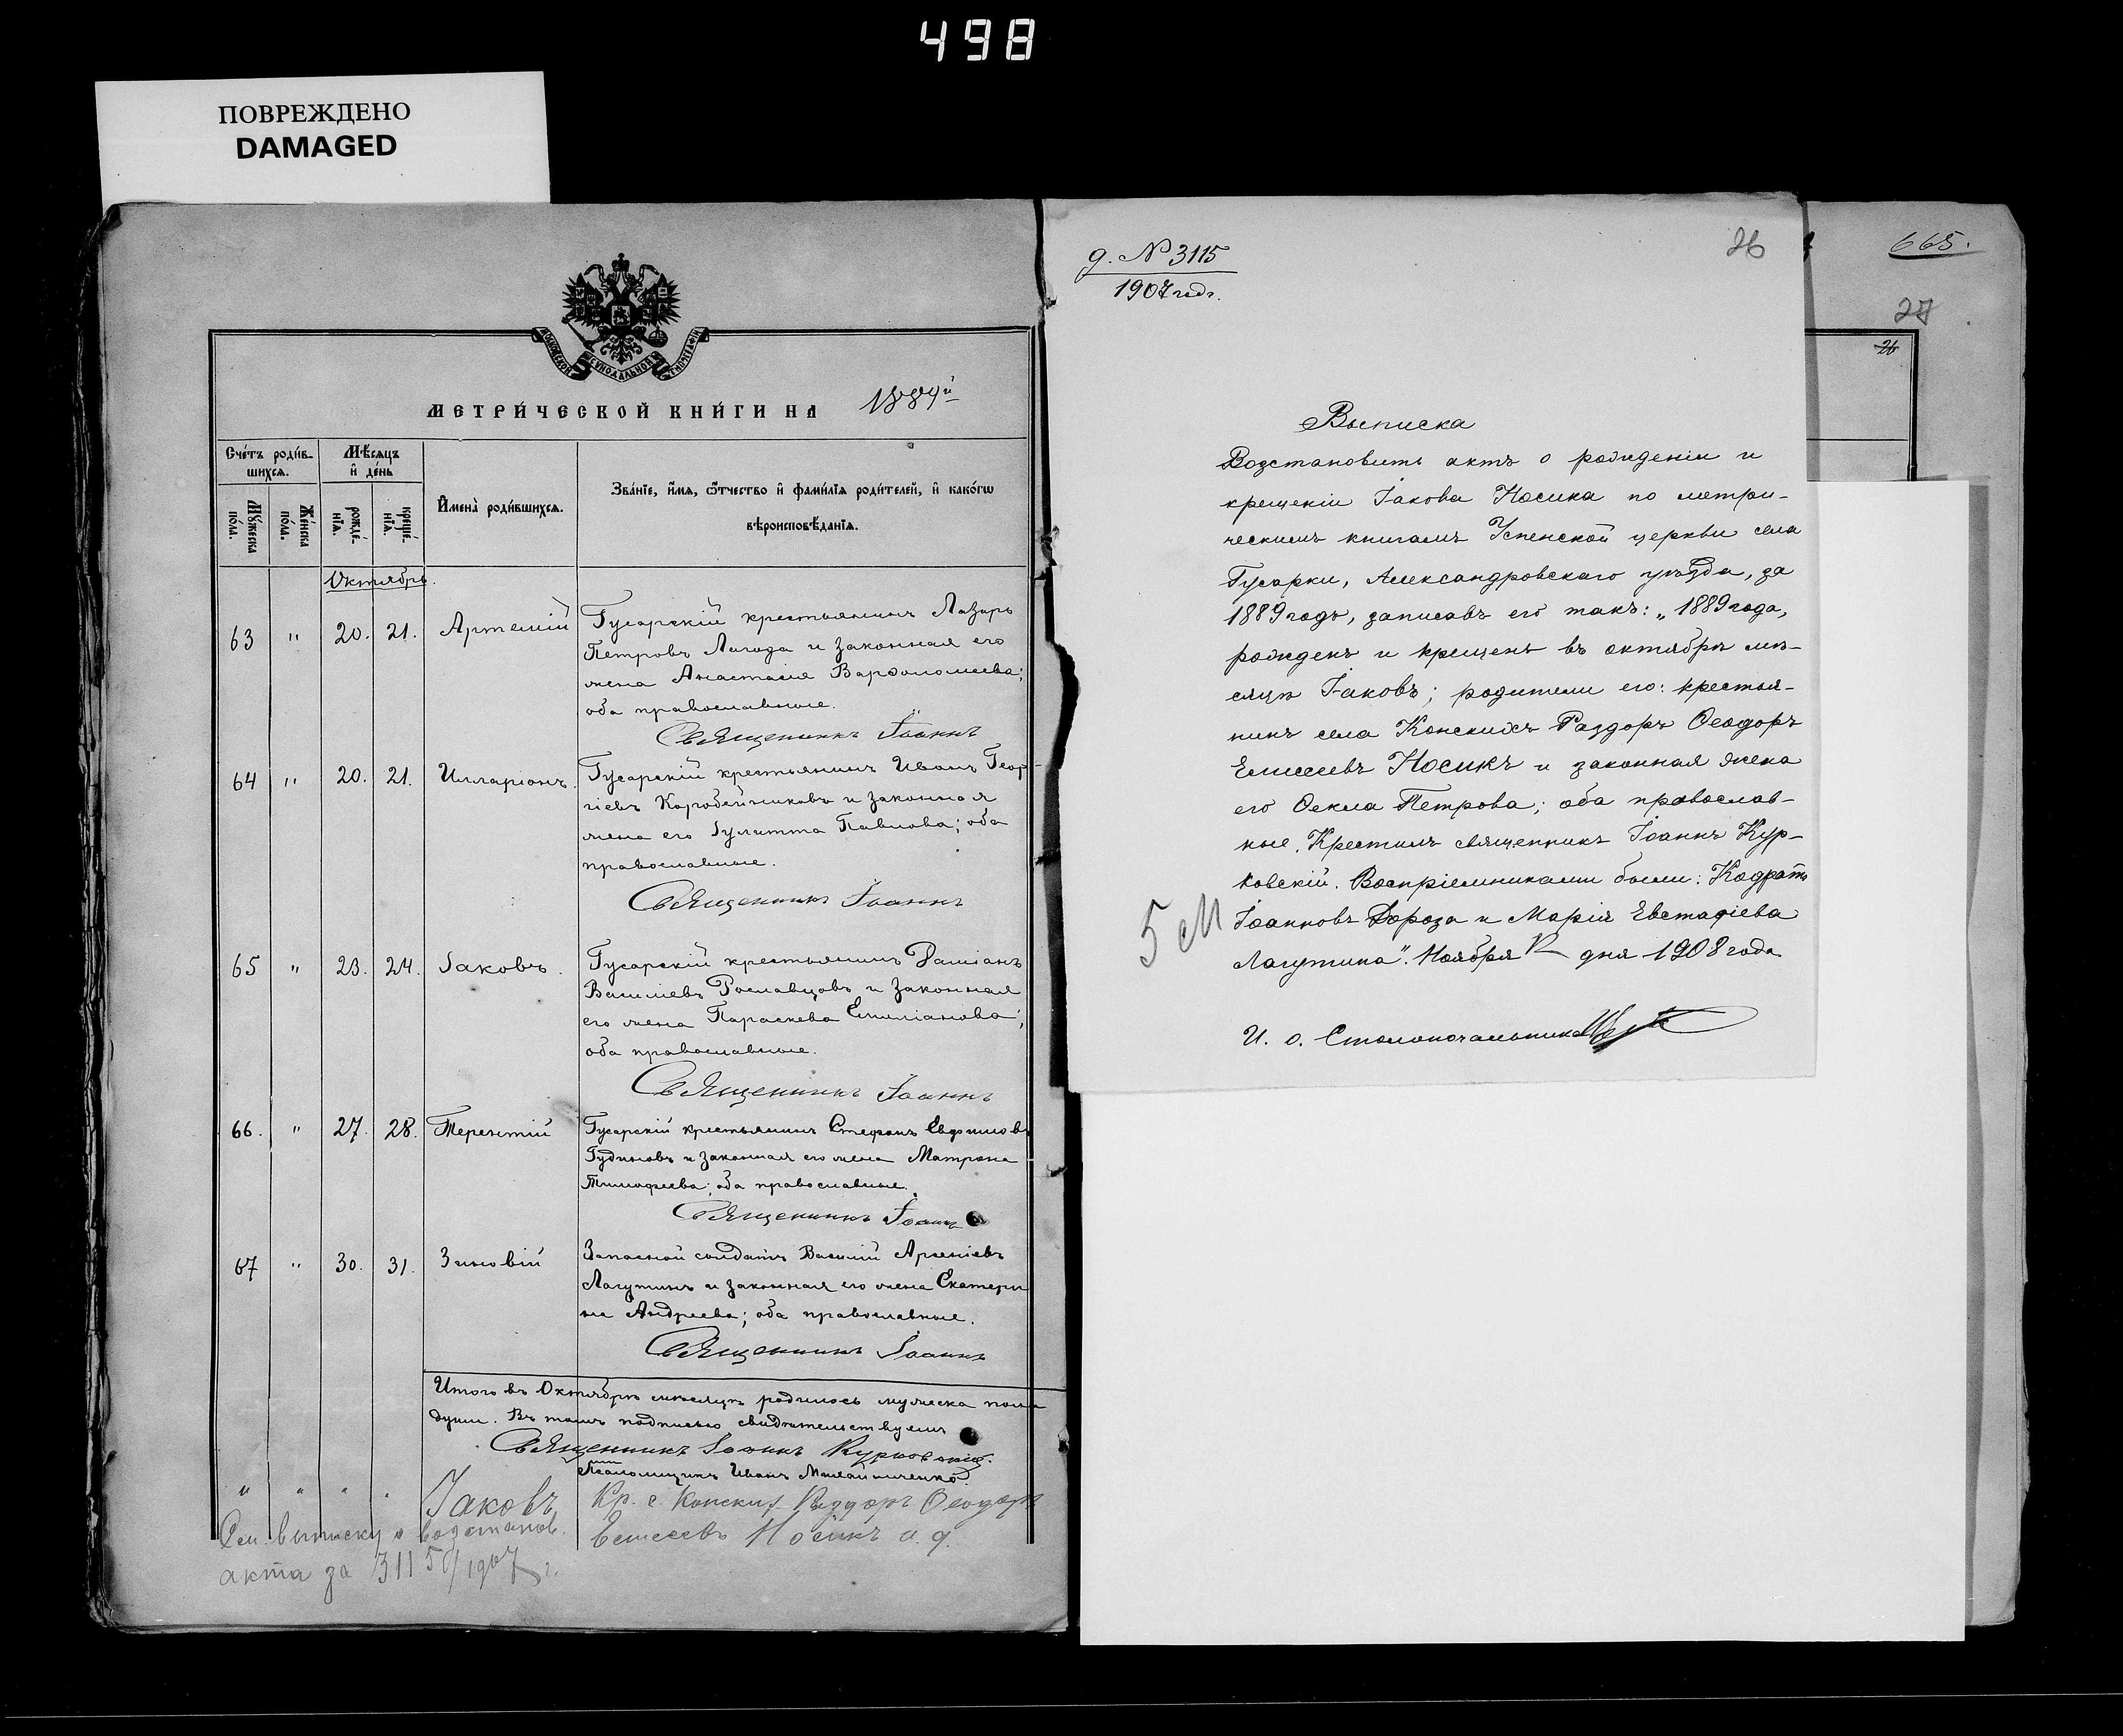 498
ПОВРЕЖДЕНО
DAMAGED
МОСКОВСКОЙ СѴНОДАЛЬНОЙ ТИПОГРАФІИ
МЕТРИ́ЧЕСКОЙ КНИ́ГИ НА 1889й
Сче́тъ роди́в-
шихсѧ.
Мѣ́сѧцъ
и҆ де́нь
Мꙋ́жеска
по́ла.
Же́нска
по́ла.
рожде́-
нїѧ.
креще́-
нїѧ.
И҆мена̀ роди́вшихсѧ.
Зва́нїе, и҆́мѧ, ѻ҆́тчество и҆ фами́лїѧ роди́телей, и҆ како́гѡ
вѣроисповѣ́данїѧ.
Октябрь.
63 " 20. 21. Артемій Гусарскій крестьянинъ Лазарь
Петровъ Лагода и законная его
жена Анастасія Варѳоломеева;
оба православные.
Священникъ Іоаннъ
64 " 20. 21. Илларіонъ. Гусарскій крестьянинъ Иванъ Геор-
гіевъ Коробейниковъ и законная
жена его Іулитта Павлова; оба
православные.
Священникъ Іоаннъ
65 " 23. 24. Іаковъ. Гусарскій крестьянинъ Даміанъ
Василіевъ Рославцовъ и законная
его жена Параскева Емиліанова;
оба православные.
Священникъ Іоаннъ
66. " 27. 28. Терентій Гусарскій крестьянинъ Стефанъ Евдокимовъ
и законная его жена Матрона
Тимофеева; оба православные.
Священникъ Іоаннъ
67 " 30. 31. Зиновій Запасной солдатъ Василій Арсеніевъ
Лагутинъ и законная его жена Екатери
на Андреева; оба православные.
Священникъ Іоаннъ
Итого въ Октябрѣ мѣсяцѣ родилось мужеска пола
душъ. Въ томъ подписью свидѣтельствуемъ
Священникъ Іоаннъ Курковскій.
Псаломщикъ Иванъ
" " " " Іаковъ Кр. с. Конских Раздоръ Ѳеодоръ
Елисеевъ Носикъ и. д.
См. выписку о возстанов.
акта за 3115/1907 г.
д. № 3115
1907 годъ.
26
Выписка
Возстановить актъ о рожденіи и
крещеніи Іакова Носика по метри-
ческимъ книгамъ Успенской церкви села
Гусарки, Александровскаго уѣзда, за
1889 годъ, записавъ его такъ: „1889 года,
рожденъ и крещенъ въ октябрѣ мѣ-
сяцѣ Іаковъ; родители его: крестья-
нинъ села Конскихъ Раздоръ Ѳеодоръ
Елисеевъ Носикъ и законная жена
его Ѳекла Петрова; оба православ-
ные. Крестилъ священникъ Іоаннъ Кур-
ковскій. Воспріемниками были: Кодратъ
Іоанновъ Дороза и Марія Евстафіева
Лагутина". Ноября дня 1908 года
5 М
И. о. Столоначальника
665.
27
26